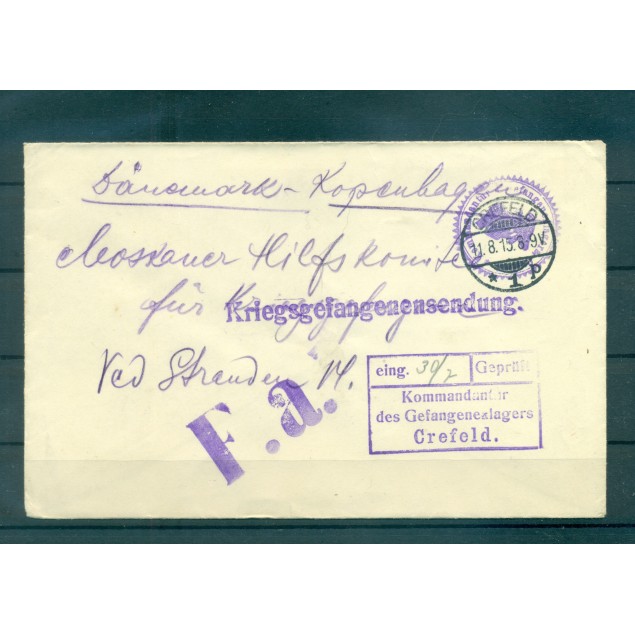 Dänemark - Kopenhagen
CREFELD
11.8.15.8-9V
* 1 b
Moskauer Hilfskomite
für
Kriegsgefangenensendung.
Ved Stranden 14.
F.a.
eing. 30/7 Geprüft
Kommandantur
des Gefangenenlagers
Crefeld.